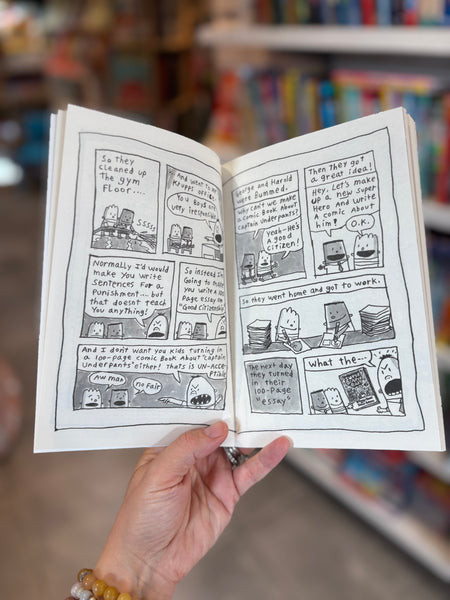 So they
cleaned up
the gym
floor....
SSSSS
And went to Mr
Krupps office.
You Boys are
very irresponsible
Normally I'd would
make you write
sentences for a
punishment... but
that doesnt teach
you anything!
So instead I'm
Going to make
you write a 100
Page essay on
"Good citizenship
And I don't want you kids turning in
a 100-page comic Book about "Captain
Underpants" either! That is UN-Acce
Ptible
Aw man
no Fair
George and Harold
were Bummed.
Why can't we make
a comic Book About
Captain Underpants?
Yeah-He's
A good
Citizen!
Then They got
a great idea!
Hey, Let's make
up a new super
Hero And write
A comic About
him?
O.K.
So they went home and got to work.
The next day
they turned
in their
100-Page
"essay"
What the---